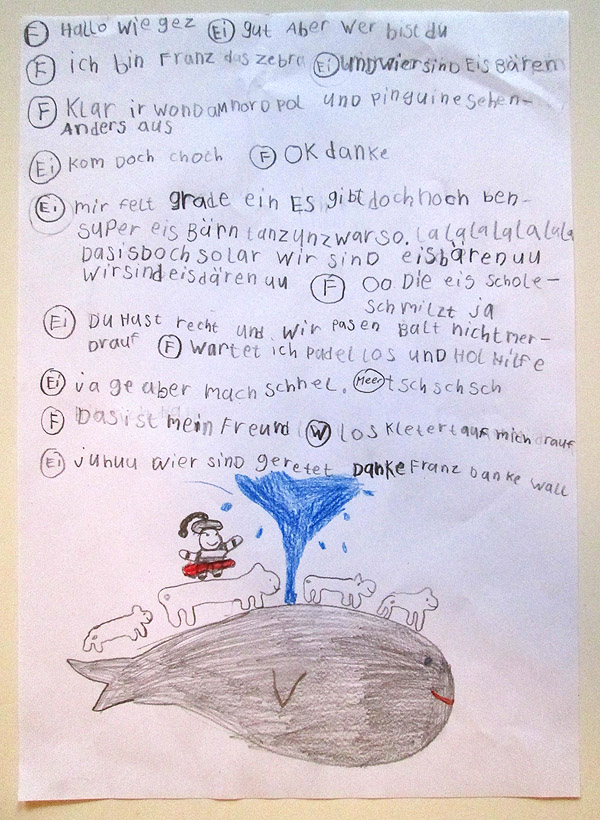 F Hallo wie gez Ei gut Aber wer bist du
F ich bin Franz das zebra Ei und wier sind Eis Bären
F Klar ir wond am nord pol und pinguine sehen-
Anders aus
Ei kom Doch choch F OK danke
Ei mir felt grade ein ES gibt doch noch ben-
super eis Bärn tanz unz war so. lalalalalalala
Dasisboch so lar wir sind eisbären uu
wir sind eisdären uu F Oo Die eis schole-
schmilzt ja
Ei Du Hast recht und wir pasen Balt nicht mer-
Drauf F wartet ich padel los und Hol Hilfe
Ei ja ge aber mach schnel. Meer tschschsch
F Das ist mein Freund W los kletert auf mich drauf
Ei juhuu wier sind geretet Danke Franz Danke wall